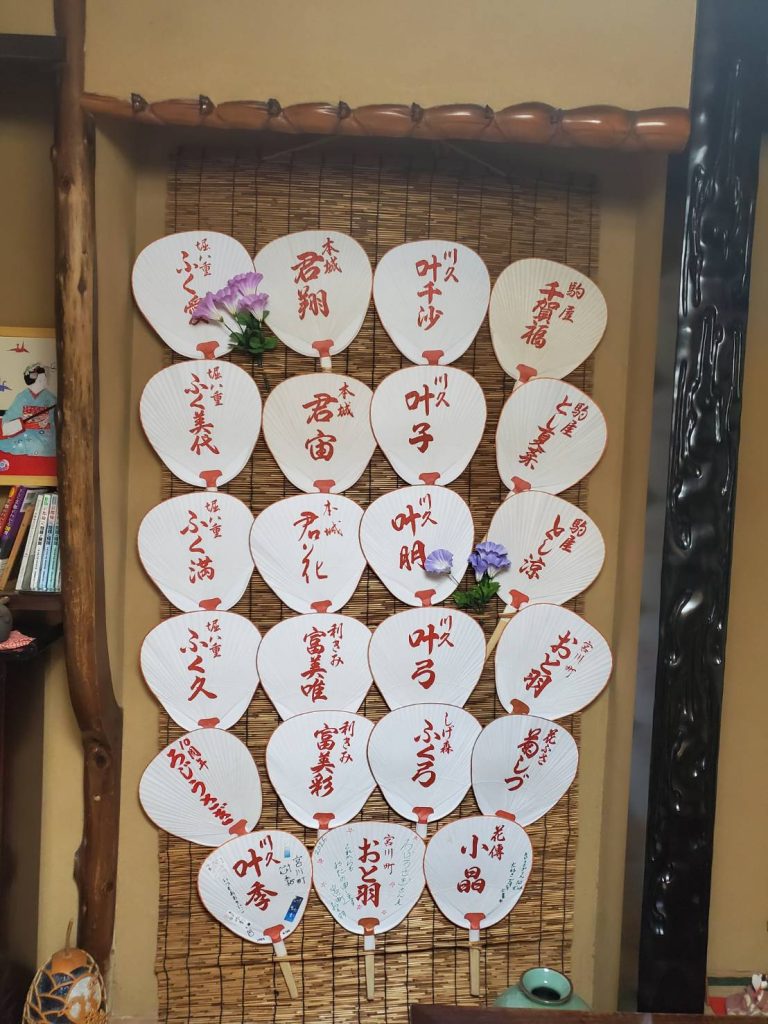 堀八重
ふく愛
本城
君翔
川久
叶千沙
駒屋
千賀福
堀八重
ふく美代
本城
君宙
川久
叶子
駒屋
とし夏菜
堀八重
ふく満
本城
君花
川久
叶明
駒屋
とし涼
堀八重
ふく久
利きみ
富美唯
川久
叶弓
宮川町
おと羽
10周年
ろじうさぎ
利きみ
富美彩
しげ森
ふく弓
花ふさ
菊しづ
川久
叶秀
宮川町
宮川町
おと羽
ろじうさぎさん
花傳
小晶